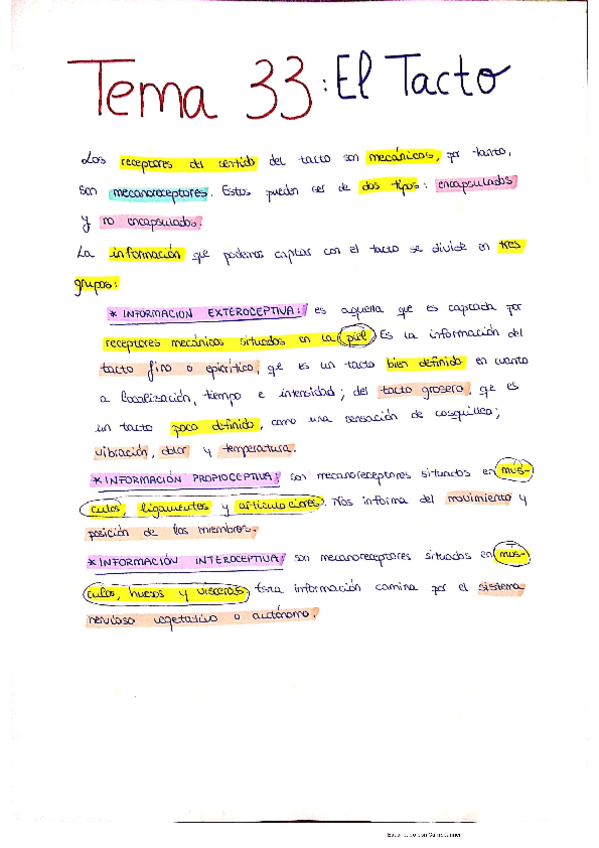 Tema 33: El Tacto
Los receptores del sentido del tacto son mecánicos, por tanto,
son mecanoreceptores. Estos pueden ser de dos tipos: encapsulados
y no encapsulados.
La información que podemos captar con el tacto se divide en tres
grupos:
* INFORMACION EXTEROCEPTIVA: es aquella que es captada por
receptores mecánicos situados en la piel. Es la información del
tacto fino o epicrítico, qe es un tacto bien definido en cuanto
a localización, tiempo e intensidad; del tacto grosero, qe es
un tacto poco definido, como una sensación de cosquilleo;
vibración, dolor y temperatura.
* INFORMACIÓN PROPIOCEPTIVA: son mecanoreceptores situados en mús-
culos, ligamentos y articulaciones. Nos informa del movimiento y
posición de los miembros.
* INFORMACIÓN INTEROCEPTIVA: son mecanoreceptores situados en mús-
culos, huesos y vísceras. Esta información camina por el sistema
nervioso vegetativo o autónomo.